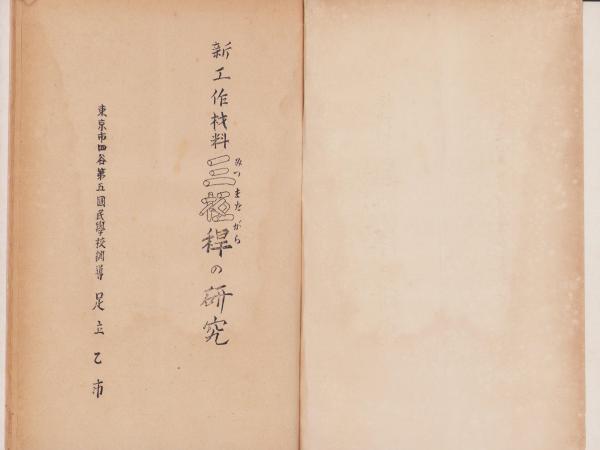 新工作材料三椏稈の研究
みつまたがら
東京市四谷第五國民學校訓導 足立乙市